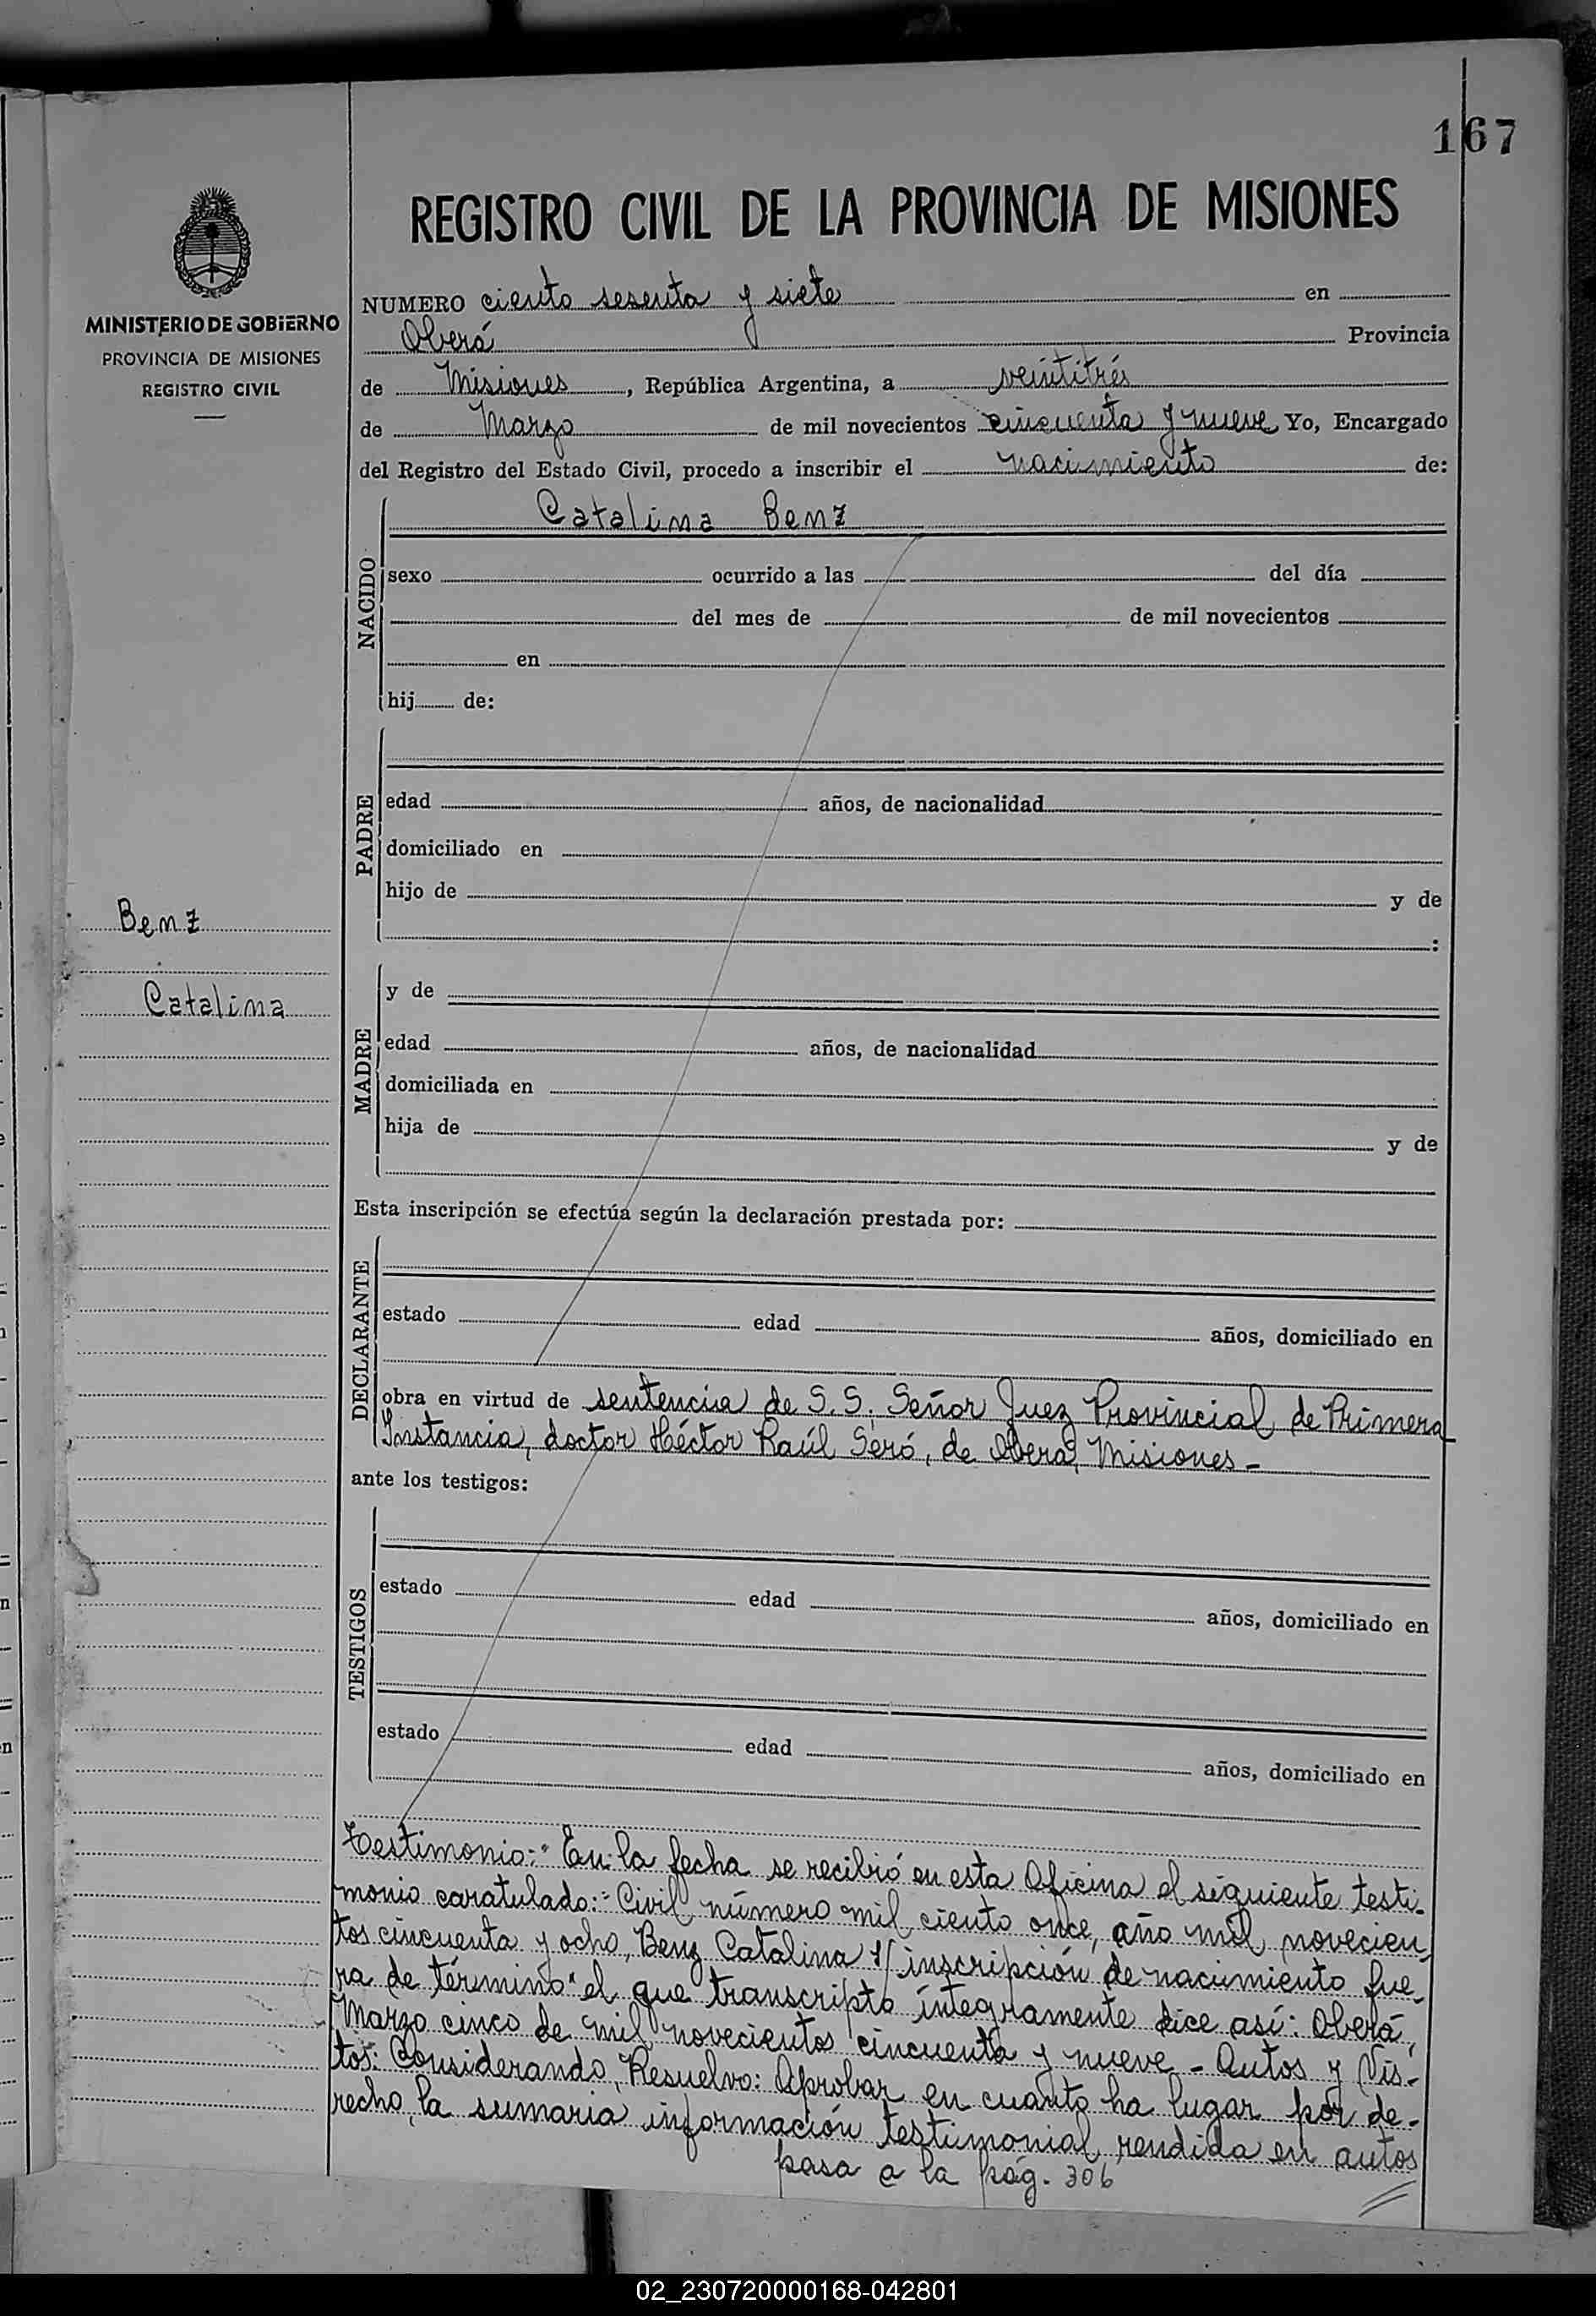 167
REGISTRO CIVIL DE LA PROVINCIA DE MISIONES
MINISTERIO DE GOBIERNO
PROVINCIA DE MISIONES
REGISTRO CIVIL
NUMERO ciento sesenta y siete en
Oberá Provincia
de Misiones, República Argentina, a veintitrés
de Marzo de mil novecientos cincuenta y nueve Yo, Encargado
del Registro del Estado Civil, procedo a inscribir el nacimiento de:
Catalina Benz
NACIDO
sexo ocurrido a las del día
del mes de de mil novecientos
en
hij de:
PADRE
edad años, de nacionalidad
domiciliado en
hijo de y de
:
Benz
Catalina
MADRE
y de
edad años, de nacionalidad
domiciliada en
hija de y de
Esta inscripción se efectúa según la declaración prestada por:
DECLARANTE
estado edad años, domiciliado en
obra en virtud de sentencia de S. S. Señor Juez Provincial de Primera
Instancia, doctor Héctor Raúl Seró, de Oberá, Misiones-
ante los testigos:
TESTIGOS
estado edad años, domiciliado en
estado edad años, domiciliado en
Testimonio:" En la fecha se recibió en esta Oficina el siguiente testi-
monio caratulado:" Civil número mil ciento once, año mil novecien-
tos cincuenta y ocho, Benz Catalina s/ inscripción de nacimiento fue-
ra de término" el que transcripto íntegramente dice así: Oberá,
Marzo cinco de mil novecientos cincuenta y nueve - Autos y Vis-
tos: Considerando, Resuelvo: Aprobar en cuanto ha lugar por de-
recho, la sumaria información testimonial rendida en autos
pasa a la pág. 306
02_230720000168-042801